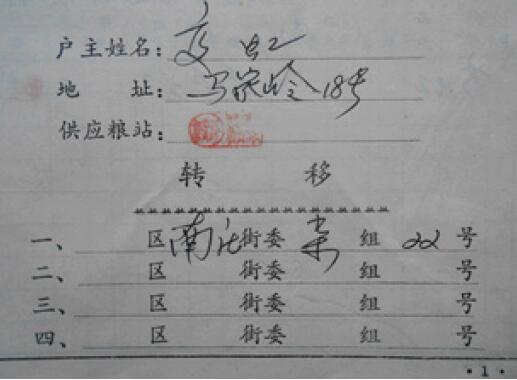 户主姓名：虹
地 址：马家岭18号
供应粮站：
转 移
一、 区 南 街委 组 22 号
二、 区 街委 组 号
三、 区 街委 组 号
四、 区 街委 组 号
·1·